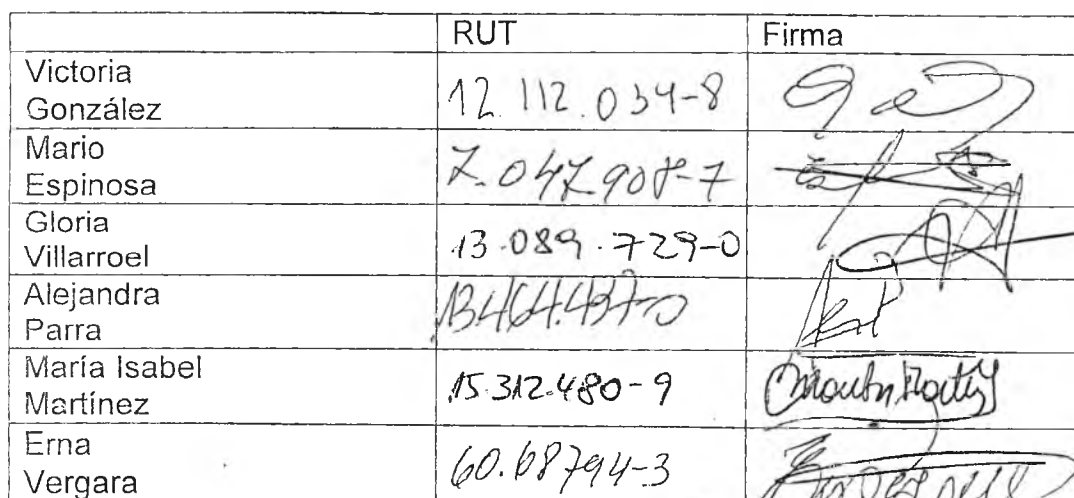 RUT Firma
Victoria
González 12.112.034-8
Mario
Espinosa 7.047.908-7
Gloria
Villarroel 13.089.729-0
Alejandra
Parra 13.464.437-0
María Isabel
Martínez 15.312.480-9
Erna
Vergara 60.68794-3